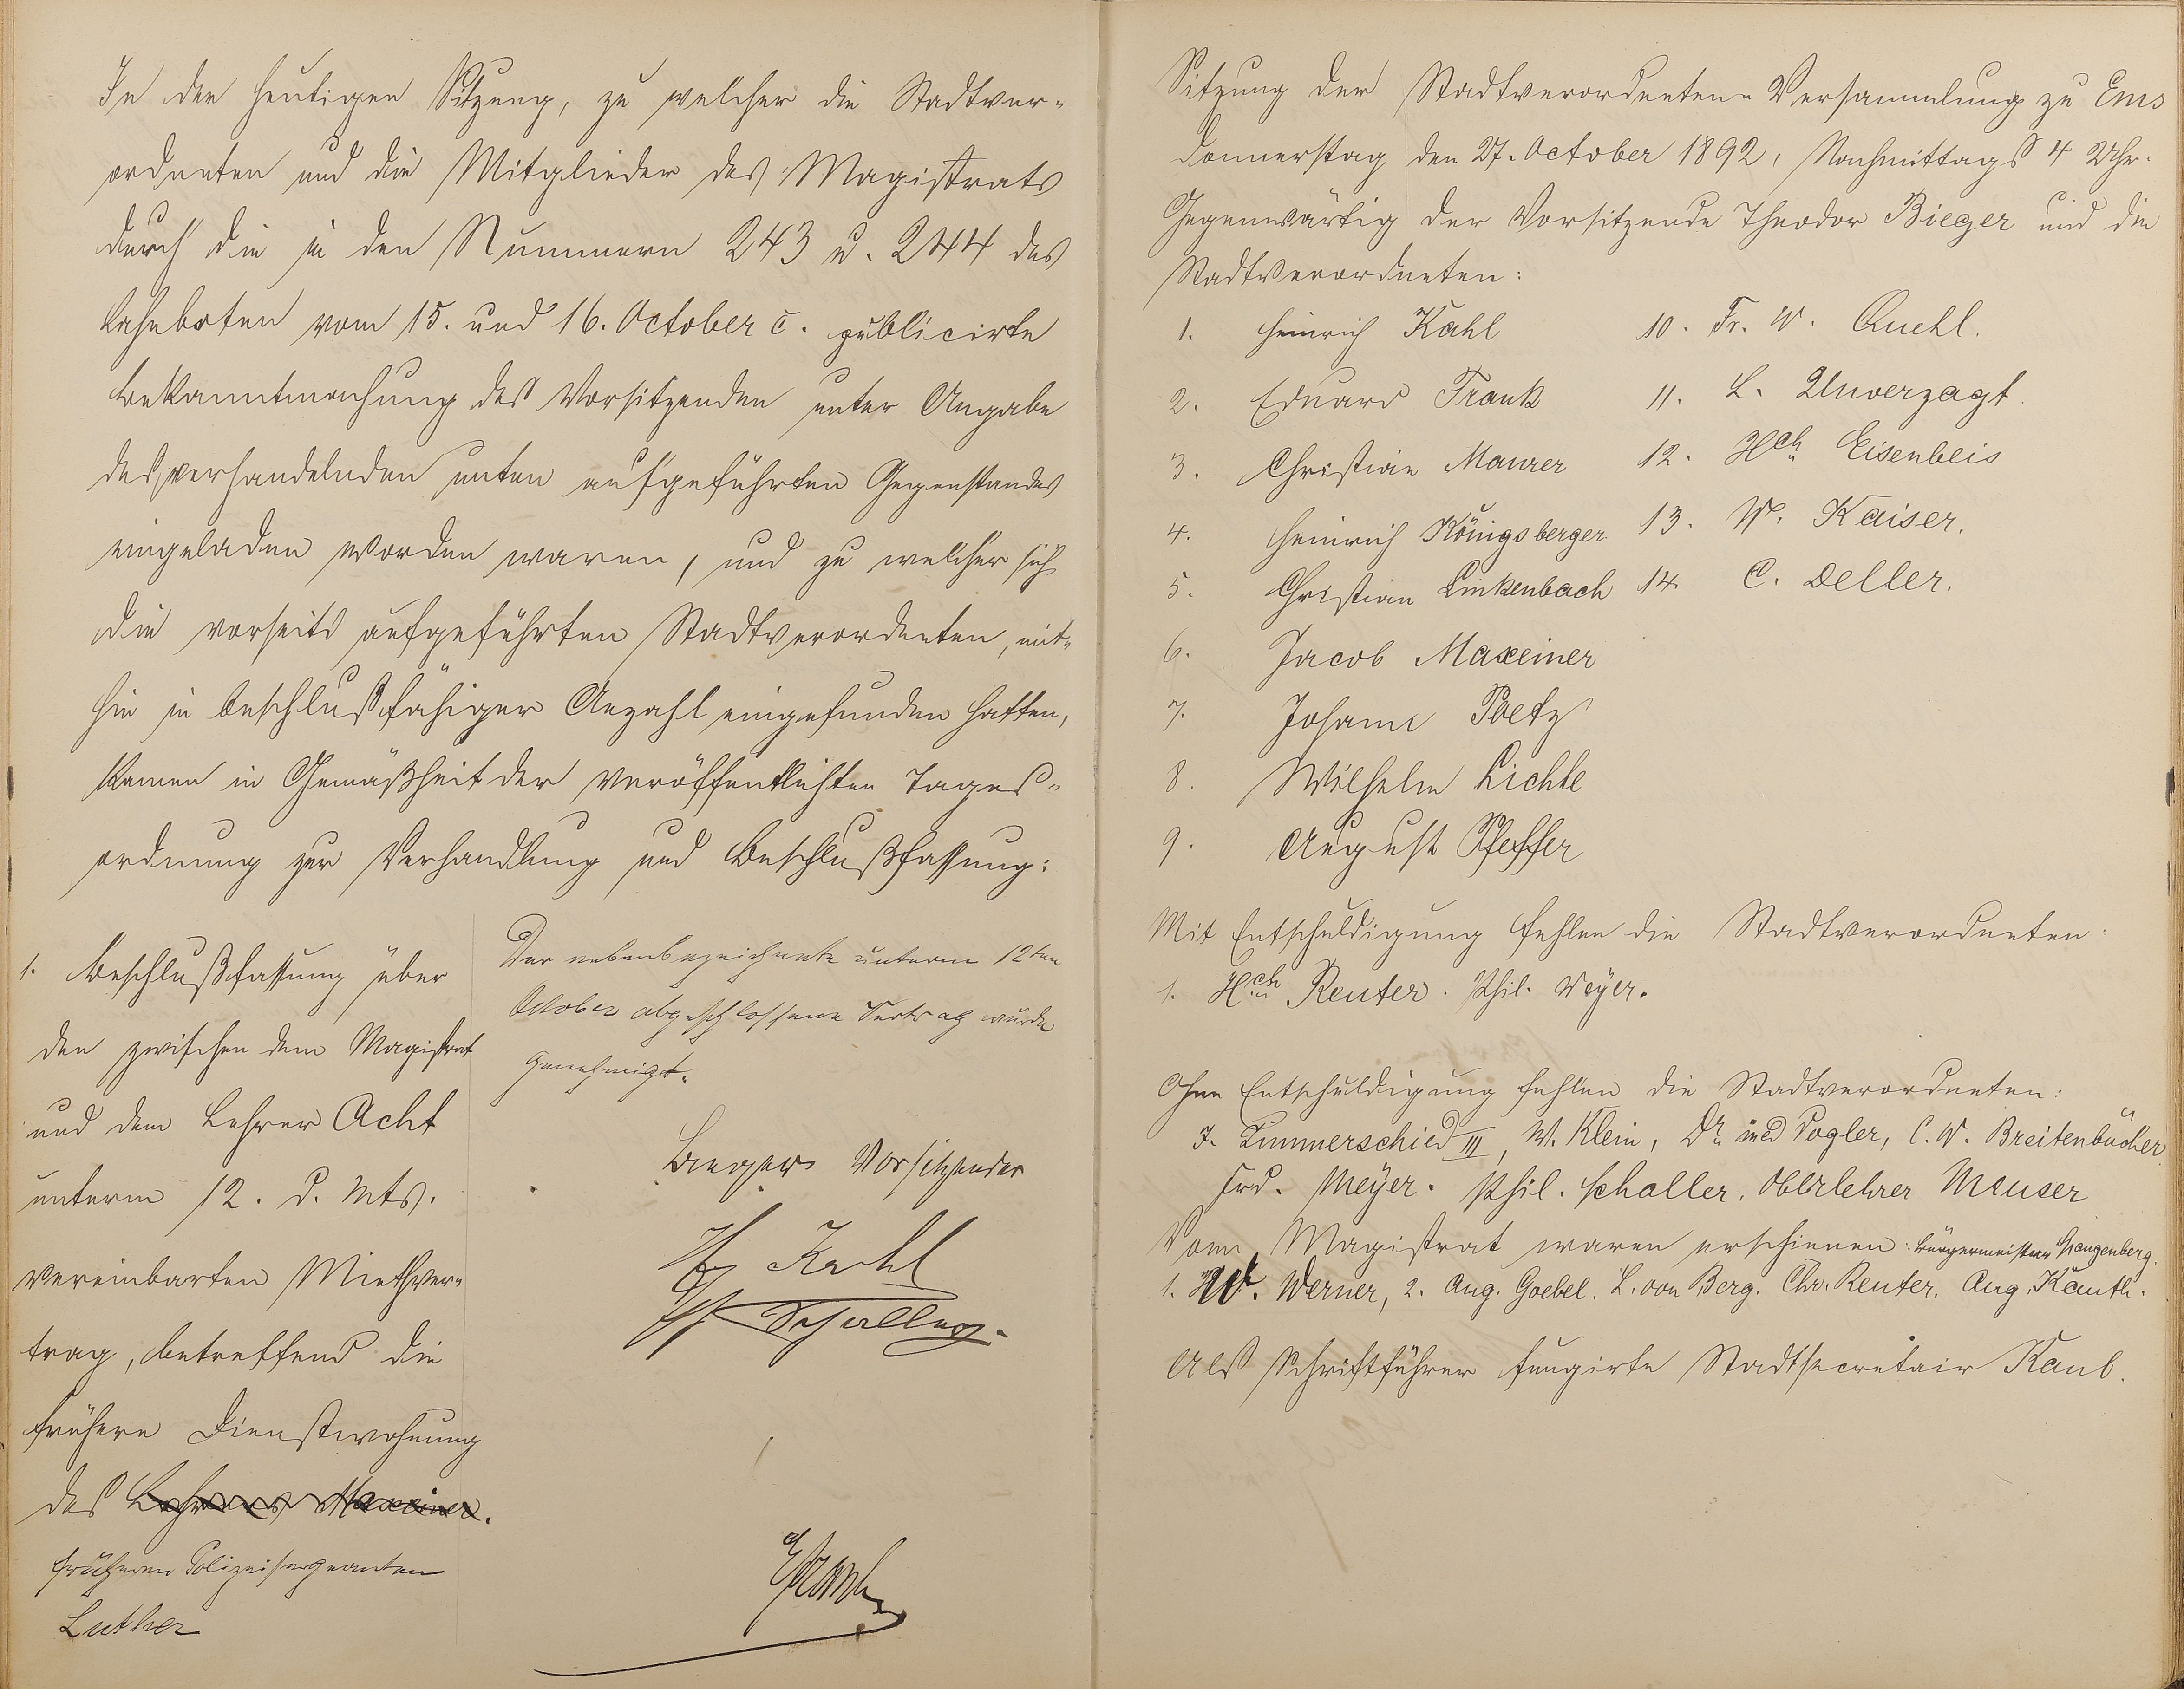 In der heutigen Sitzung, zu welcher die Stadtver-
ordneten und die Mitglieder des Magistrats
durch die in den Nummern 243 u. 244 des
Lahnboten vom 15. und 16. October c. publicirte
Bekanntmachung des Vorsitzenden unter Angabe
des verhandelnden unten aufgeführten Gegenstandes
eingeladen worden waren, und zu welcher sich
die vorseits aufgeführten Stadtverordneten, mit-
hin in beschlußfähiger Anzahl eingefunden hatten,
kamen in Gemäßheit der veröffentlichten Tages-
ordnung zur Verhandlung und Beschlußfassung:
1. Beschlußfassung über
den zwischen dem Magistrat
und dem Lehrer Acht
unterm 12. d. Mts.
vereinbarten Miethver-
trag, betreffend die
frühere Dienstwohnung
des Lehrers Maxeiner.
früheren Polizeisergeanten
Luther
Der nebenbezeichnete unterm 12ten
October abgeschlossene Vertrag wurde
genehmigt.
Bieger Vorsitzender
H. Kahl
Schaller
Kaub
Sitzung der Stadtverordneten-Versammlung zu Ems
Donnerstag den 27. October 1892, Nachmittags 4 Uhr.
Gegenwärtig der Vorsitzende Theodor Bieger und die
Stadtverordneten:
1. Heinrich Kahl
2. Eduard Frank
3. Christian Maurer
4. Heinrich Königsberger
5. Christian Linkenbach
6. Jacob Maxeiner
7. Johann Poetz
8. Wilhelm Lichte
9. August Pfeffer
10. Fr. W. Quehl.
11. L. Unverzagt.
12. Hch Eisenbeis
13. W. Kaiser.
14. C. Deller.
Mit Entschuldigung fehlen die Stadtverordneten:
1. Hch Reuter. Phil. Meyer.
Ohne Entschuldigung fehlen die Stadtverordneten:
J. Zimmerschied III, W. Klein, Dr. med Vogler, C. W. Breitenbücher
Frd. Meyer. Phil. Schaller. Oberlehrer Meuser
Vom Magistrat waren erschienen: Bürgermeister Spangenberg.
1. W. Werner, 2. Aug. Goebel. L. von Berg. Chr. Reuter. Aug. Kauth.
Als Schriftführer fungirte Stadtsecretair Kaub.